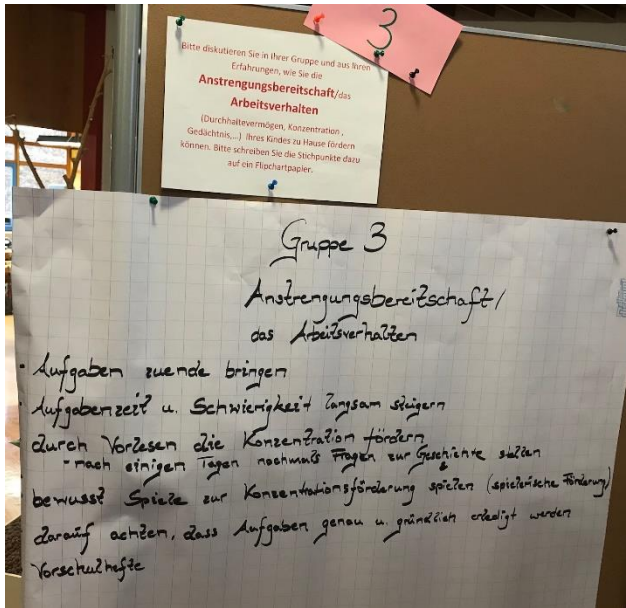 3
Bitte diskutieren Sie in Ihrer Gruppe und aus Ihren
Erfahrungen, wie Sie die
Anstrengungsbereitschaft/das
Arbeitsverhalten
(Durchhaltevermögen, Konzentration ,
Gedächtnis,...) Ihres Kindes zu Hause fördern
können. Bitte schreiben Sie die Stichpunkte dazu
auf ein Flipchartpapier.
Gruppe 3
Anstrengungsbereitschaft/
das Arbeitsverhalten
- Aufgaben zuende bringen
- Aufgabenzeit u. Schwierigkeit langsam steigern
durch Vorlesen die Konzentration fördern
- nach einigen Tagen nochmals Fragen zur Geschichte stellen
bewusst Spiele zur Konzentrationsförderung spielen (spielerische Förderung)
darauf achten, dass Aufgaben genau u. gründlich erledigt werden
Vorschulhefte